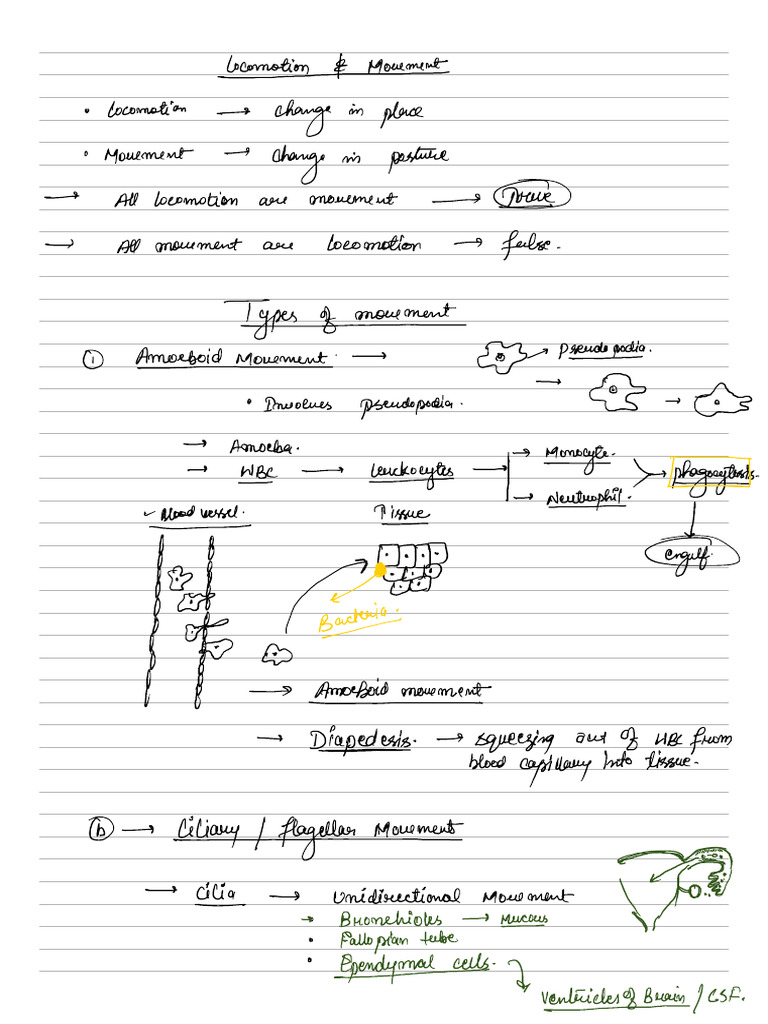 Locomotion & Movement
• Locomotion → change in place
• Movement → change in posture
→ All locomotion are movement → True
→ All movement are locomotion → false.
Types of movement
① Amoeboid Movement. → Pseudopodia.
• Involves pseudopodia.
→ Amoeba.
→ WBC → Leuckocytes → Monocyte. → phagocytosis.
→ Neutrophil.
✓ Blood vessel. Tissue
engulf.
Bacteria.
→ Amoeboid movement
→ Diapedesis. → squeezing out of WBC from
blood capillary into tissue.
ⓑ → Ciliary / flagellar Movement
→ Cilia → Unidirectional Movement
→ Bronchioles → Mucous
• Fallopian tube
• Ependymal cells.
Ventricles of Brain / CSF.